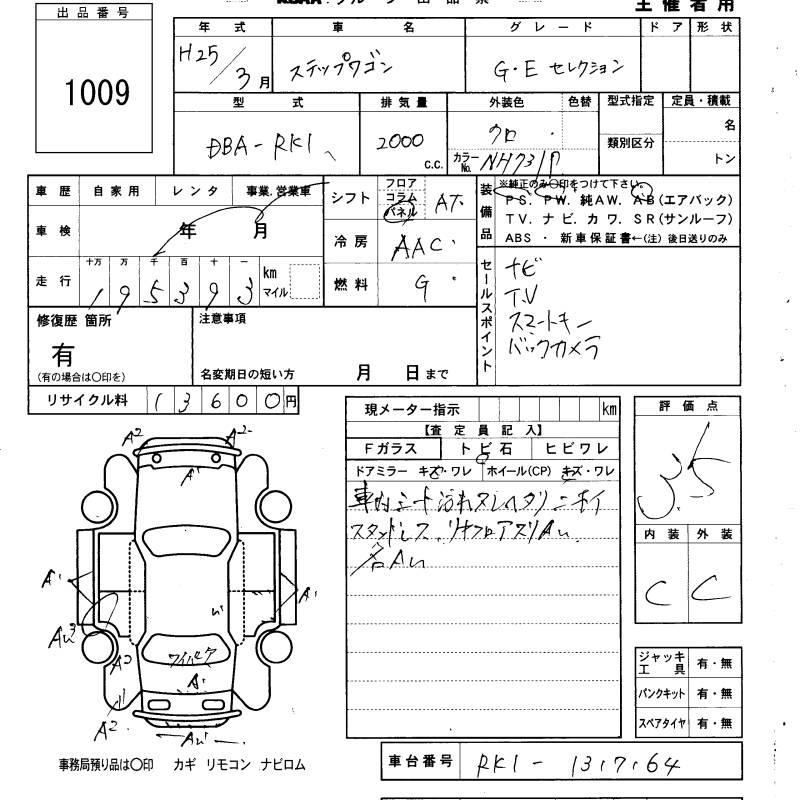 主催者用
出品番号
1009
年式 車名 グレード ドア 形状
H25/3月 ステップワゴン G・E セレクション
型式 排気量 外装色 色替 型式指定 定員・積載
類別区分
DBA-RK1 2000 c.c. クロ 名
カラーNo. NH731P トン
車歴 自家用 レンタ 事業.営業車
車検 年 月
走行 十万 万 千 百 十 一 km マイル
195393
シフト フロア コラム パネル AT
冷房 AAC
燃料 G
装備品 ※純正のみ○印をつけて下さい。
PS. PW. 純AW. AB(エアバック)
TV. ナビ. カワ. SR(サンルーフ)
ABS ・ 新車保証書←(注) 後日送りのみ
セールスポイント
ナビ
TV
スマートキー
バックカメラ
修復歴 箇所
有
(有の場合は○印を)
注意事項
名変期日の短い方 月 日まで
リサイクル料 13600円
現メーター指示 km
【査定員記入】
Fガラス トビ石 ヒビワレ
ドアミラー キズ・ワレ ホイール(CP) キズ・ワレ
車内シート汚れスレヘタリニオイ
評価点
3.5
内装 外装
C C
A2 A2
A1
A1 A1
A2
ワイパー
A1
A2
ジャッキ工具 有・無
パンクキット 有・無
スペアタイヤ 有・無
事務局預り品は○印 カギ リモコン ナビロム
車台番号 RK1-1317164